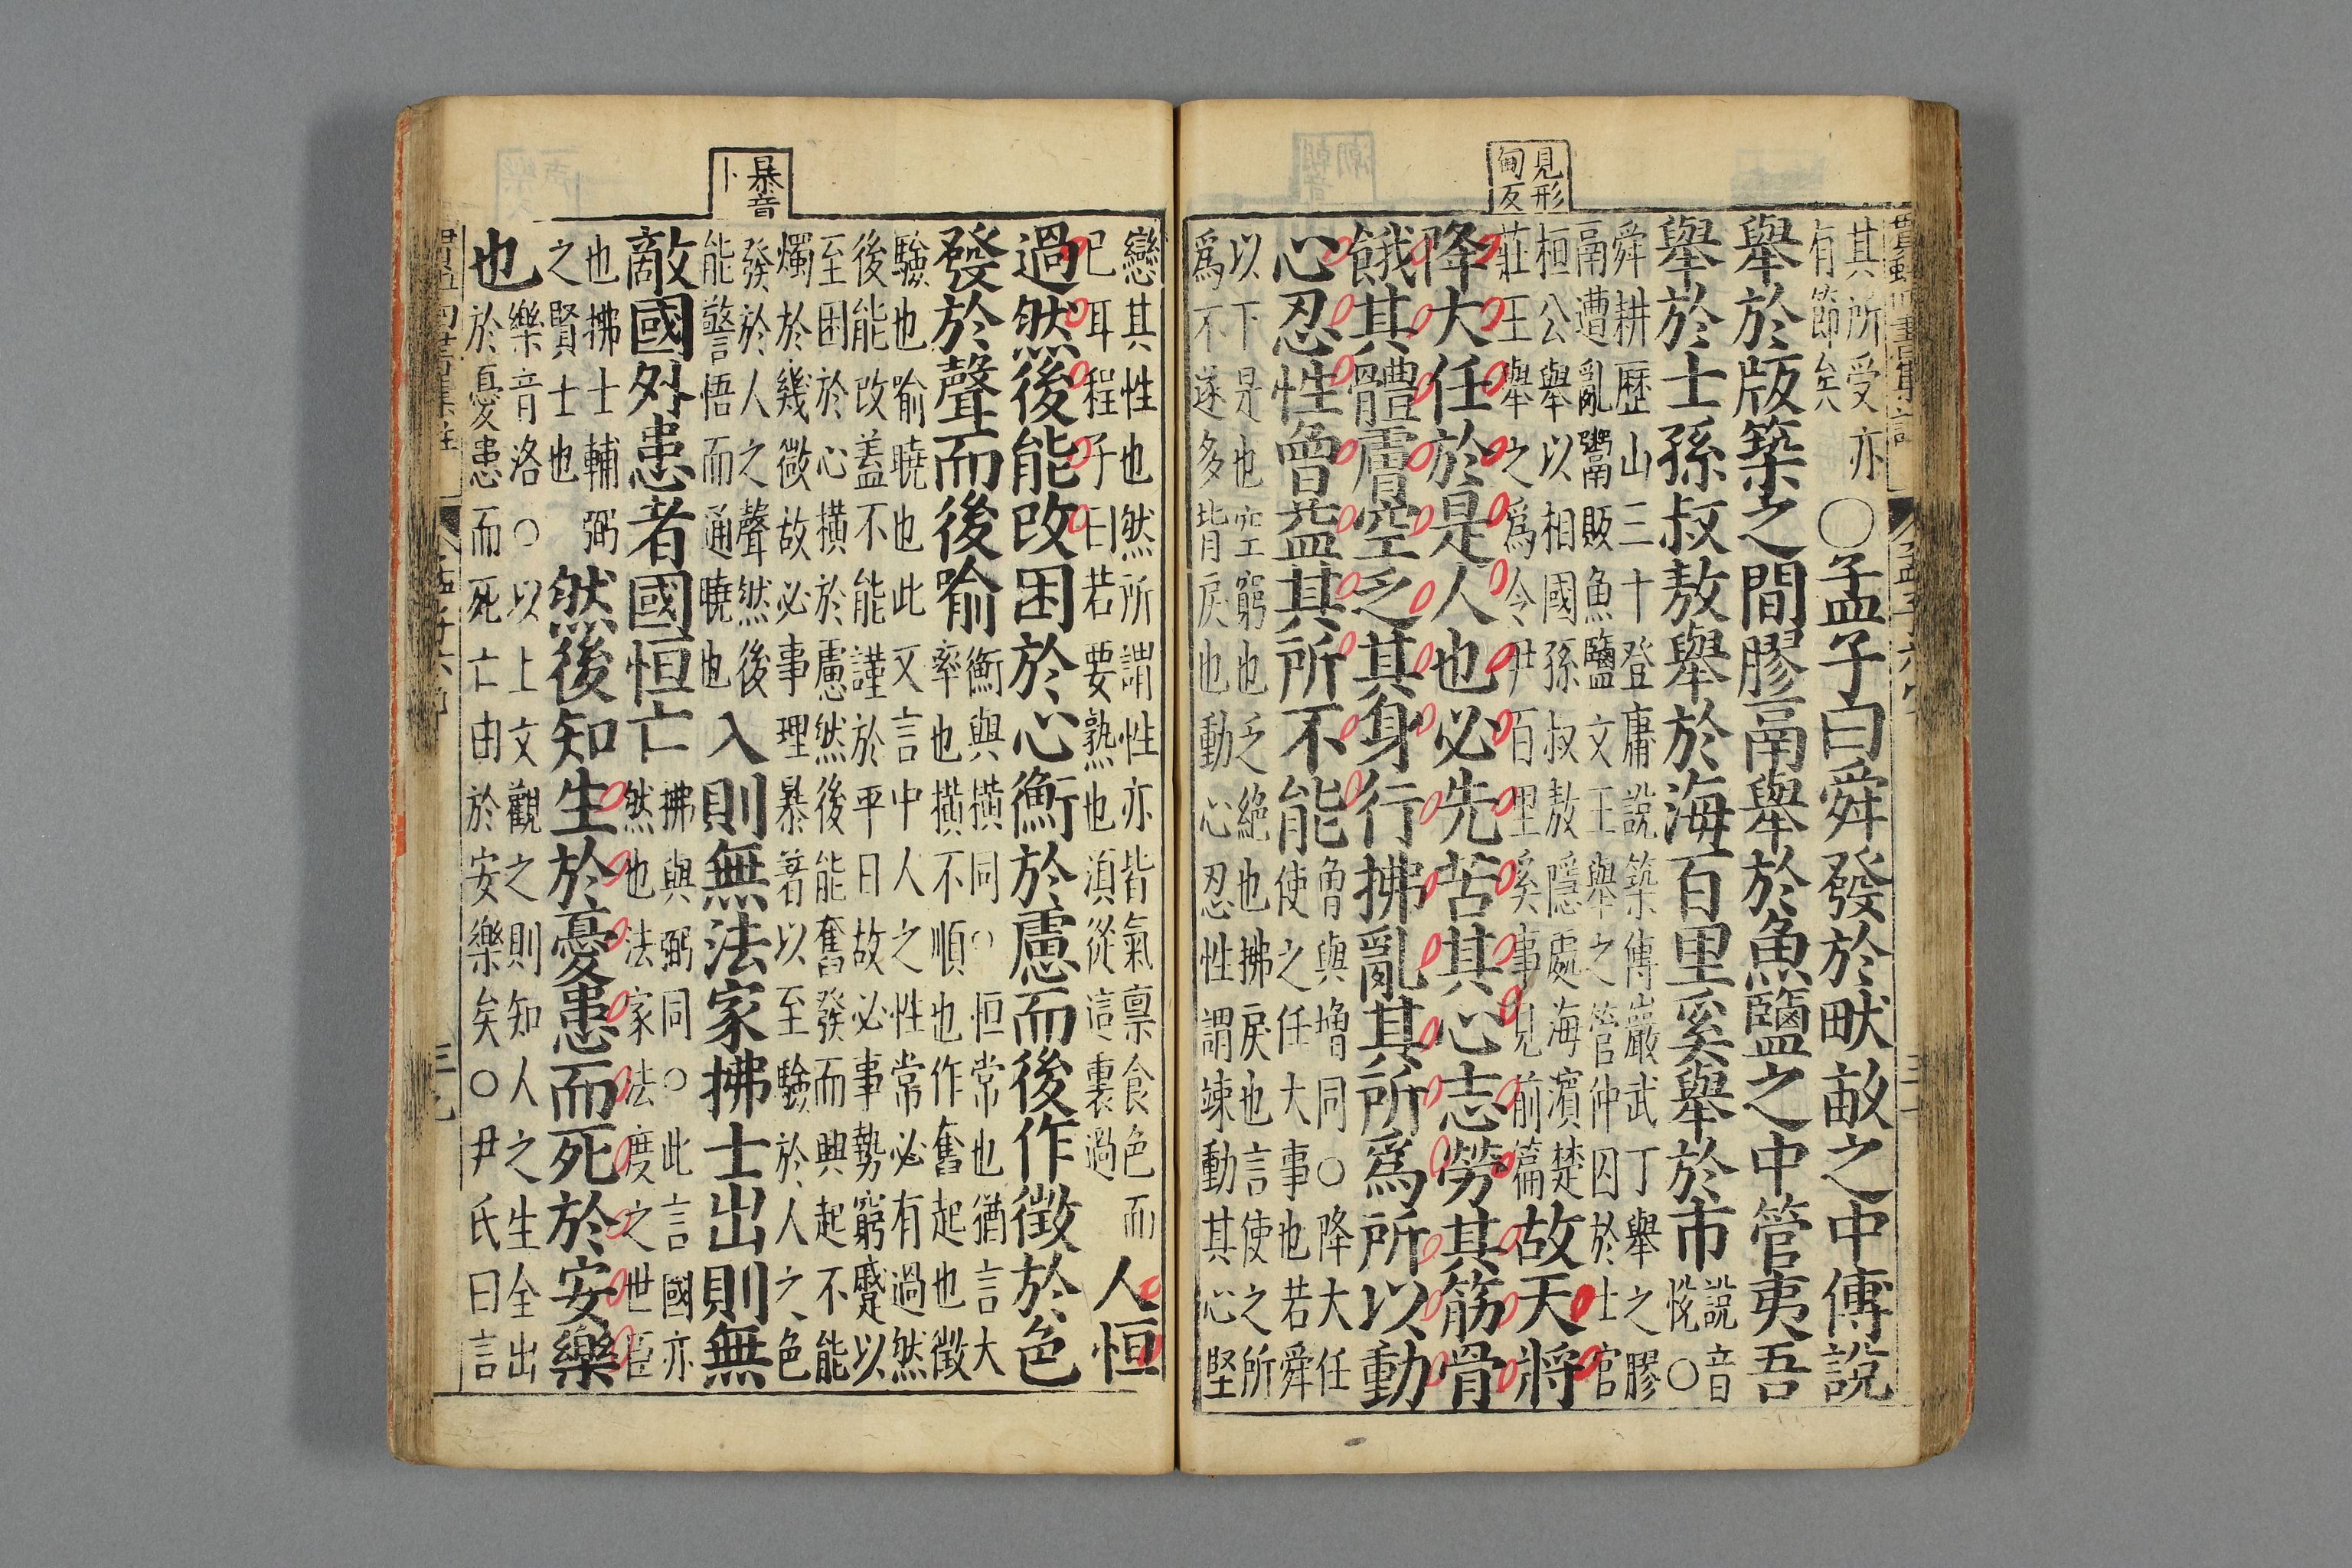 見形
甸反
其所受亦
有節矣
○孟子曰舜發於畎畝之中傅說
舉於版築之間膠鬲舉於魚鹽之中管夷吾
舉於士孫叔敖舉於海百里奚舉於市
說音
恱○
舜耕歷山三十登庸說築傅巖武丁舉之膠
鬲遭亂鬻販魚鹽文王舉之管仲囚於士官
桓公舉以相國孫叔敖隱處海濱楚
莊王舉之爲令尹百里奚事見前篇
故天將
降大任於是人也必先苦其心志勞其筋骨
餓其體膚空乏其身行拂亂其所爲所以動
心忍性曾益其所不能
曾與增同○降大任
使之任大事也若舜
以下是也空窮也乏絶也拂戾也言使之所
爲不遂多背戾也動心忍性謂竦動其心堅
暴音
卜
戀其性也然所謂性亦皆氣稟食色而
已耳程子曰若要熟也須從這裏過
人恒
過然後能改困於心衡於慮而後作徵於色
發於聲而後喻
衡與橫同○恒常也猶言大
率也橫不順也作奮起也徵
驗也喻曉也此又言中人之性常必有過然
後能改蓋不能謹於平日故必事勢窮蹙以
至困於心橫於慮然後能奮發而興起不能
燭於幾微故必事理暴著以至驗於人之色
發於人之聲然後
能警悟而通曉也
入則無法家拂士出則無
敵國外患者國恒亡
拂與弼同○此言國亦
然也法家法度之世臣
也拂士輔弼
之賢士也
然後知生於憂患而死於安樂
也
樂音洛○以上文觀之則知人之生全出
於憂患而死亡由於安樂矣○尹氏曰言